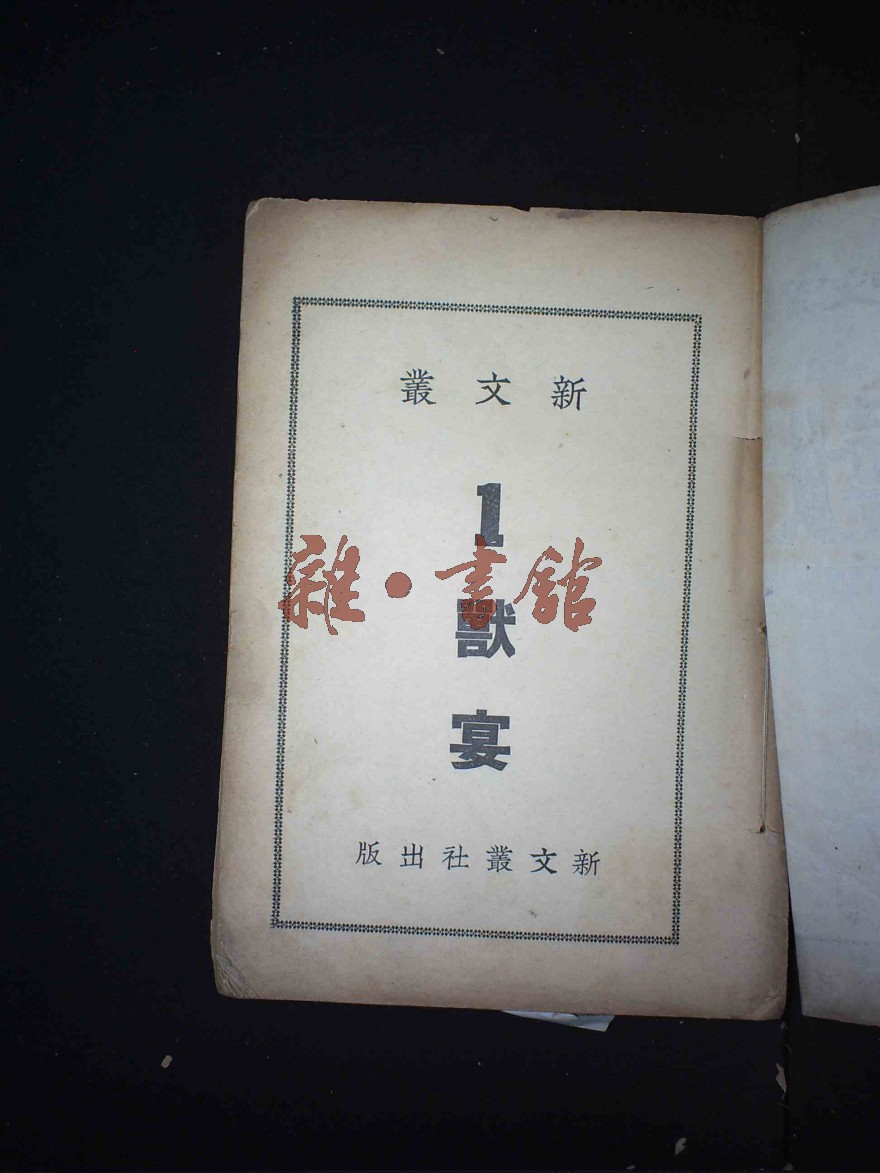 新文叢
1
獸
宴
雜·書館
新文叢社出版